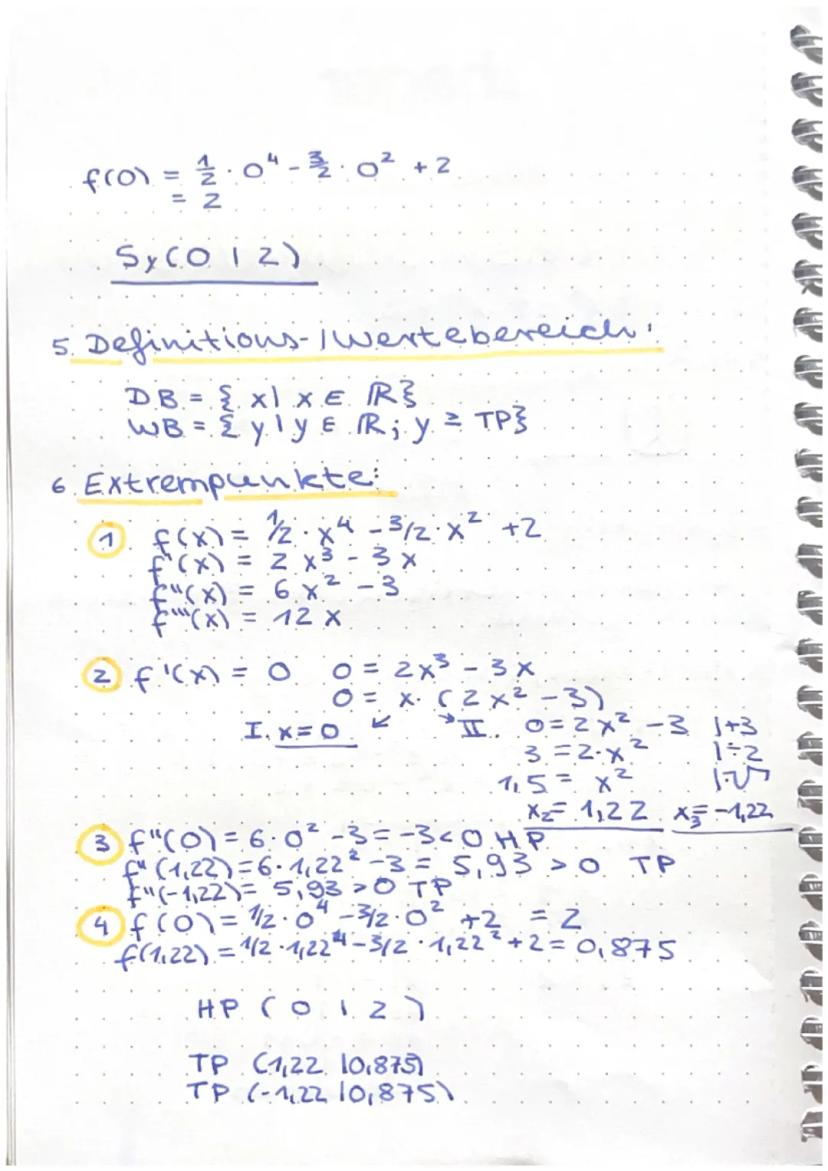 f(0) = 1/2 · 0⁴ - 3/2 · 0² + 2
= 2
Sy(0 | 2)
5. Definitions-/Wertebereich:
DB = { x | x ∈ ℝ}
WB = { y | y ∈ ℝ; y ≥ TP}
6 Extrempunkte:
① f(x) = 1/2 · x⁴ - 3/2 · x² + 2
f'(x) = 2x³ - 3x
f''(x) = 6x² - 3
f'''(x) = 12x
② f'(x) = 0 0 = 2x³ - 3x
0 = x · (2x² - 3)
I. x = 0 ↙ ↘ II. 0 = 2x² - 3 |+3
3 = 2·x² |÷2
1,5 = x² |√
x₂ = 1,22 x₃ = -1,22
③ f''(0) = 6·0² - 3 = -3 < 0 HP
f''(1,22) = 6·1,22² - 3 = 5,93 > 0 TP
f''(-1,22) = 5,93 > 0 TP
④ f(0) = 1/2·0⁴ - 3/2·0² + 2 = 2
f(1,22) = 1/2·1,22⁴ - 3/2·1,22² + 2 = 0,875
HP (0 | 2)
TP (1,22 | 0,875)
TP (-1,22 | 0,875)